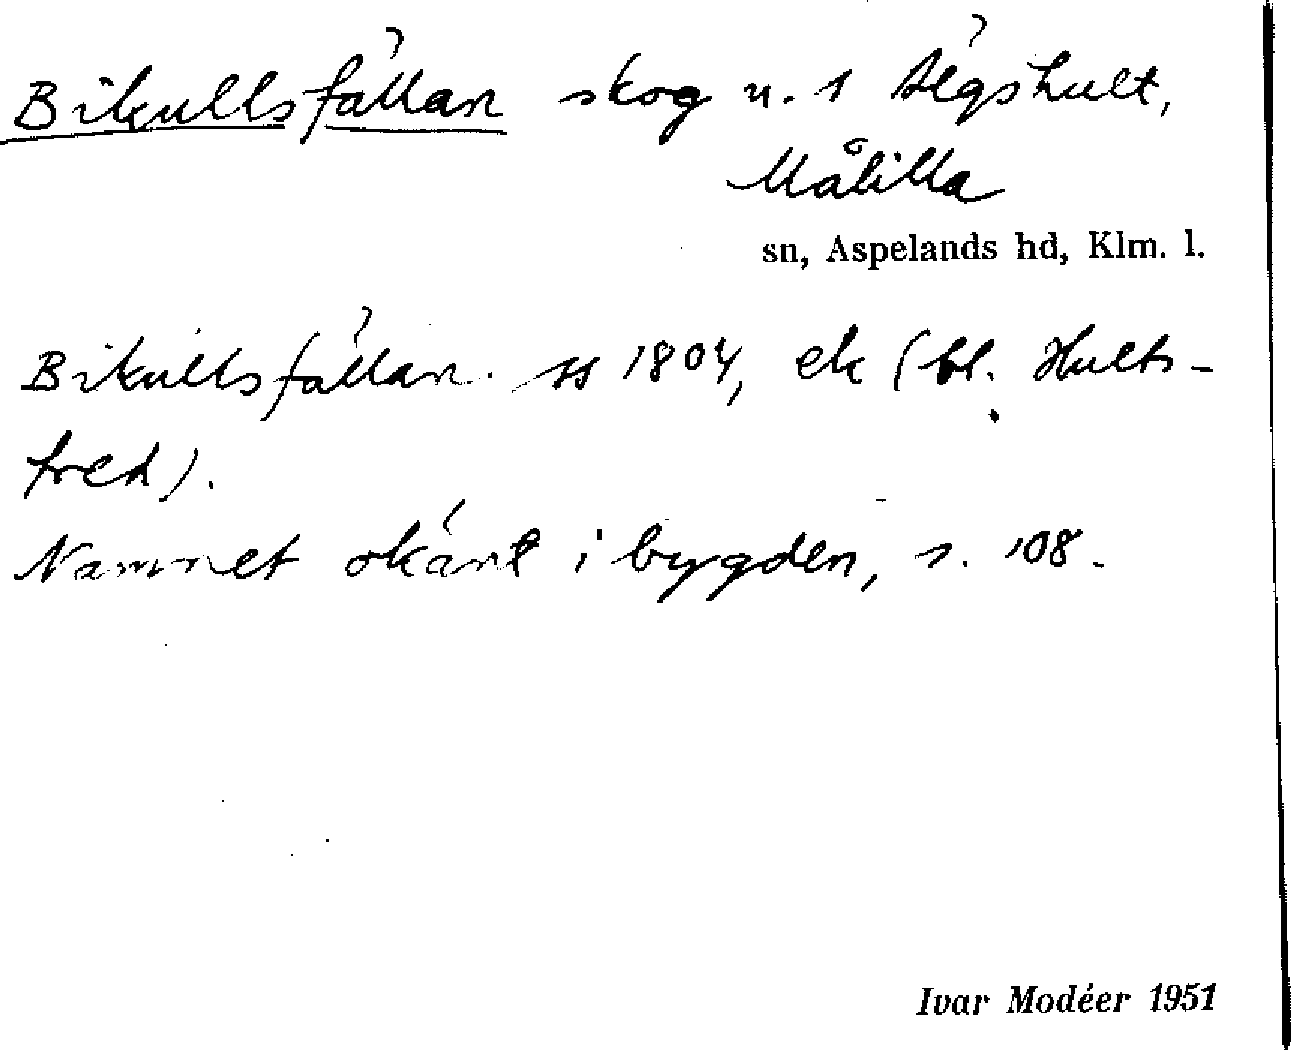 Bikullsfällan skog n. 1 Älgshult,
Målilla
sn, Aspelands hd, Klm. l.
Bikullsfällan. ss 1804, ek (bl. Hults-
fred).
Namnet okänt i bygden, s. '08.
Ivar Modéer 1951